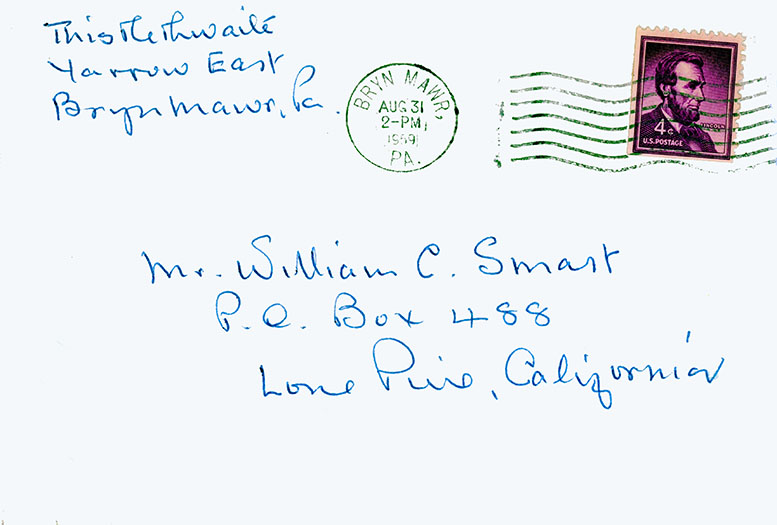 Thistlethwaite
Yarrow East
Bryn Mawr, Pa.
BRYN MAWR,
AUG 31
2-PM
1959
PA.
LINCOLN
4¢
U.S. POSTAGE
Mr. William C. Smart
P.O. Box 488
Lone Pine, California